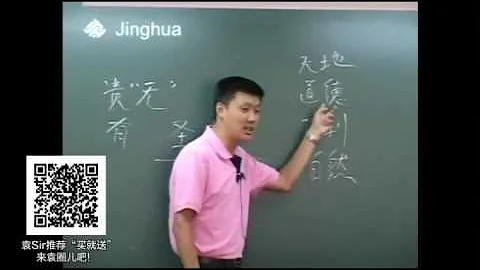 Jinghua
天地
贵"无"
道德
有 圣
利
自然
袁Sir推荐"买就送"
来袁圈儿吧!